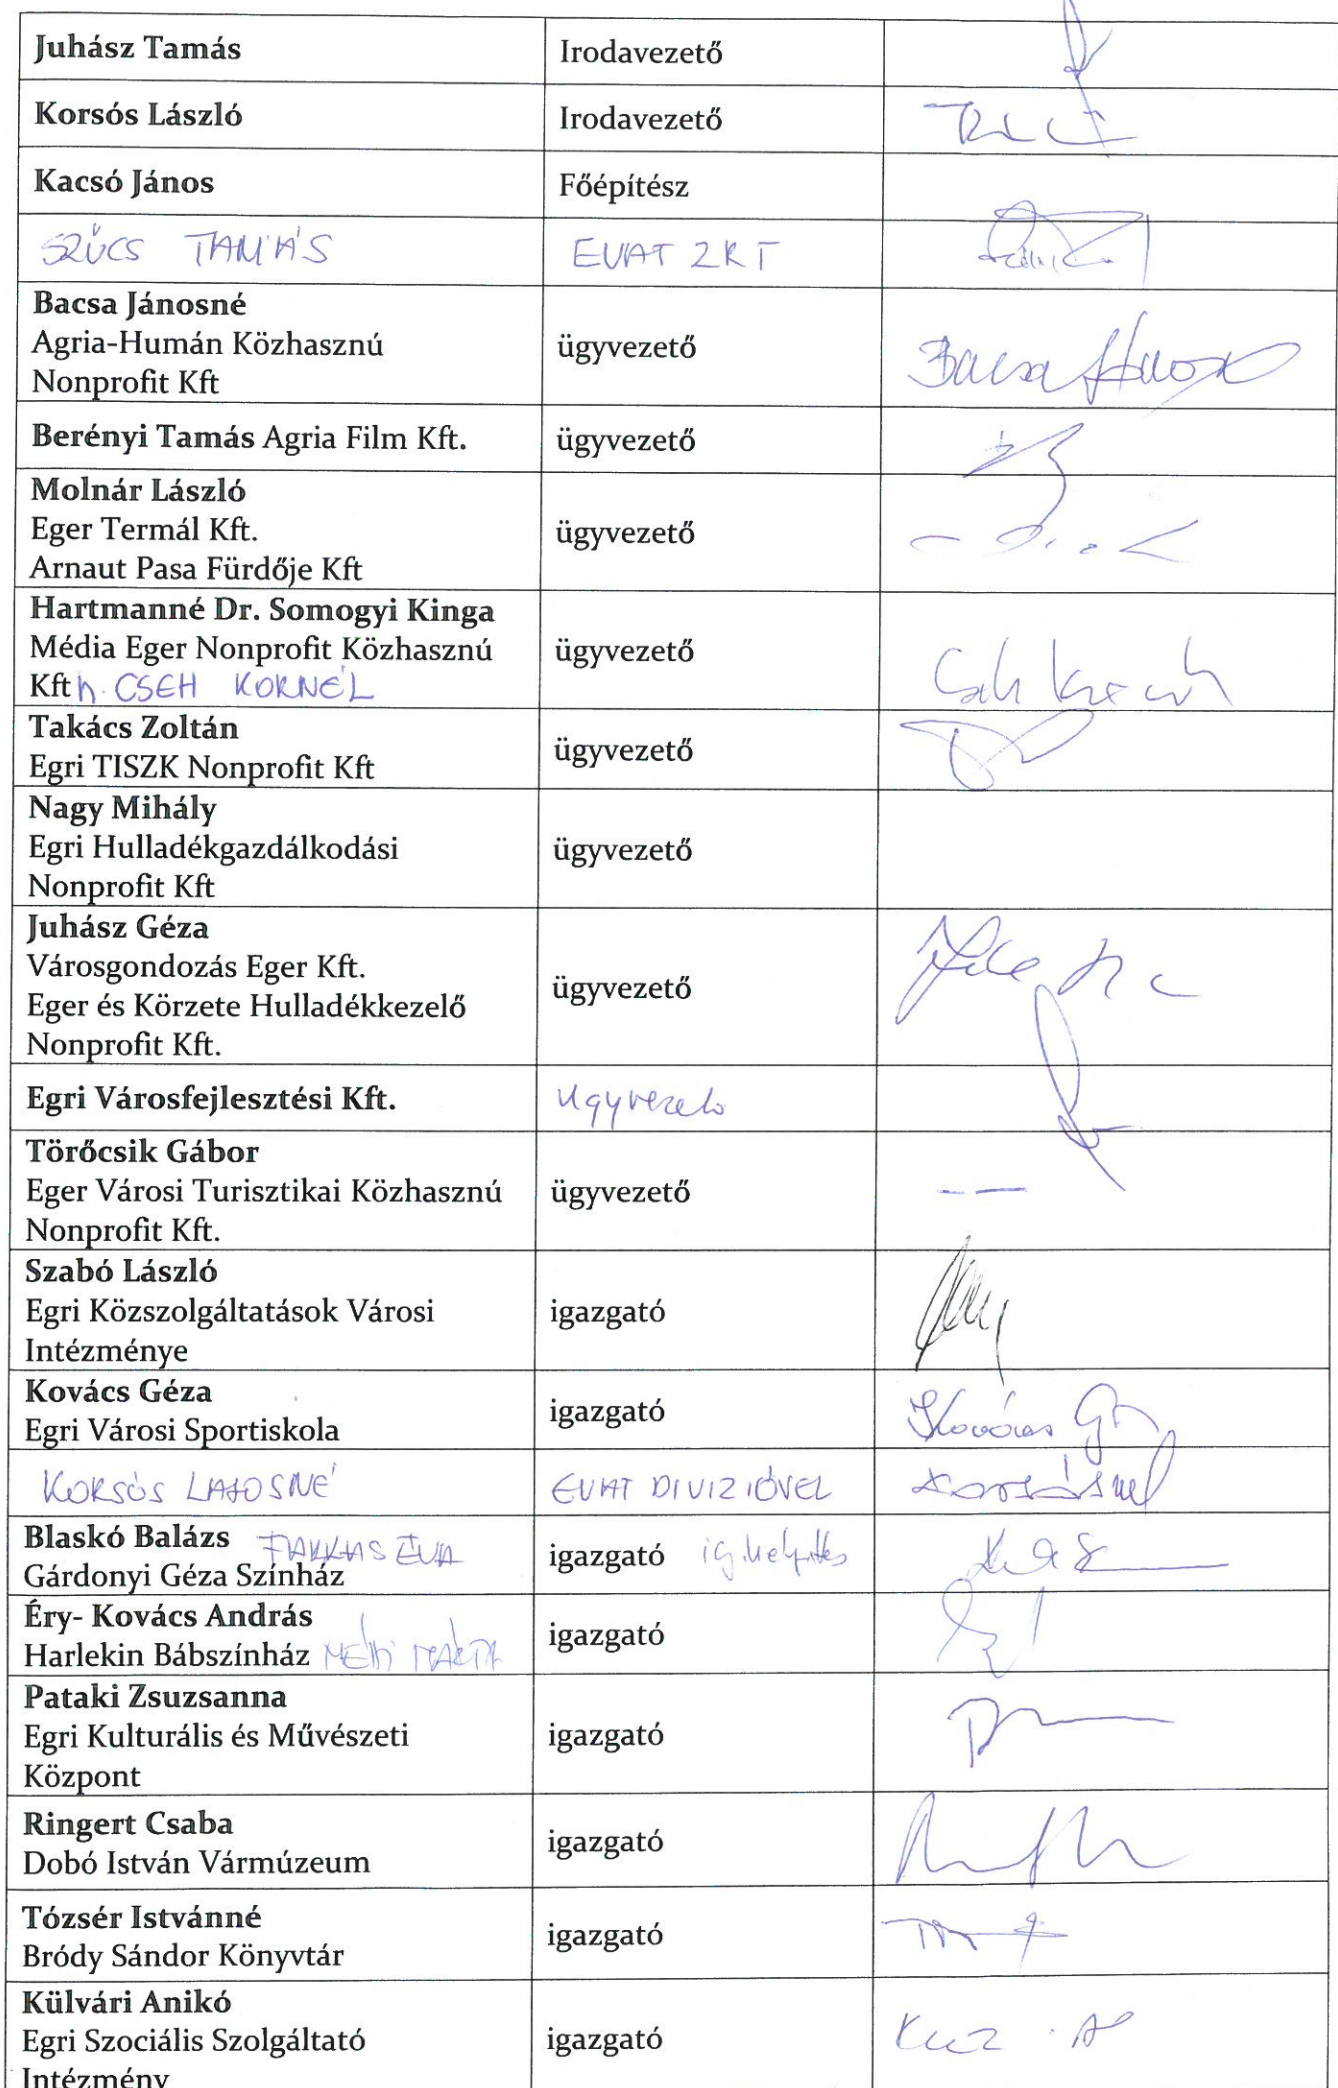 Juhász Tamás Irodavezető
Korsós László Irodavezető
Kacsó János Főépítész
SZŰCS TAMÁS EVAT ZRT
Bacsa Jánosné
Agria-Humán Közhasznú
Nonprofit Kft
ügyvezető
Bacsa
Berényi Tamás Agria Film Kft. ügyvezető
Molnár László
Eger Termál Kft.
Arnaut Pasa Fürdője Kft
ügyvezető
Hartmanné Dr. Somogyi Kinga
Média Eger Nonprofit Közhasznú
Kft h. CSEH KORNÉL
ügyvezető
Takács Zoltán
Egri TISZK Nonprofit Kft
ügyvezető
Nagy Mihály
Egri Hulladékgazdálkodási
Nonprofit Kft
ügyvezető
Juhász Géza
Városgondozás Eger Kft.
Eger és Körzete Hulladékkezelő
Nonprofit Kft.
ügyvezető
Egri Városfejlesztési Kft. ügyvezető
Törőcsik Gábor
Eger Városi Turisztikai Közhasznú
Nonprofit Kft.
ügyvezető
Szabó László
Egri Közszolgáltatások Városi
Intézménye
igazgató
Kovács Géza
Egri Városi Sportiskola
igazgató
Kovács G
KORSÓS LAJOSNÉ EVAT DIVIZIÓVEZ Korsósné
Blaskó Balázs FARKAS ÉVA
Gárdonyi Géza Színház
igazgató ig.helyettes
Éry- Kovács András
Harlekin Bábszínház
igazgató
Pataki Zsuzsanna
Egri Kulturális és Művészeti
Központ
igazgató
Ringert Csaba
Dobó István Vármúzeum
igazgató
Tózsér Istvánné
Bródy Sándor Könyvtár
igazgató
Külvári Anikó
Egri Szociális Szolgáltató
Intézmény
igazgató